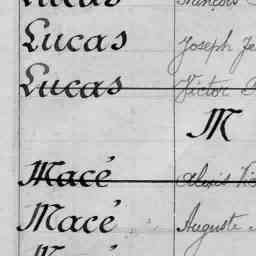 Lucas François
Lucas Joseph
Lucas Victor
M
Macé Alexis
Macé Auguste